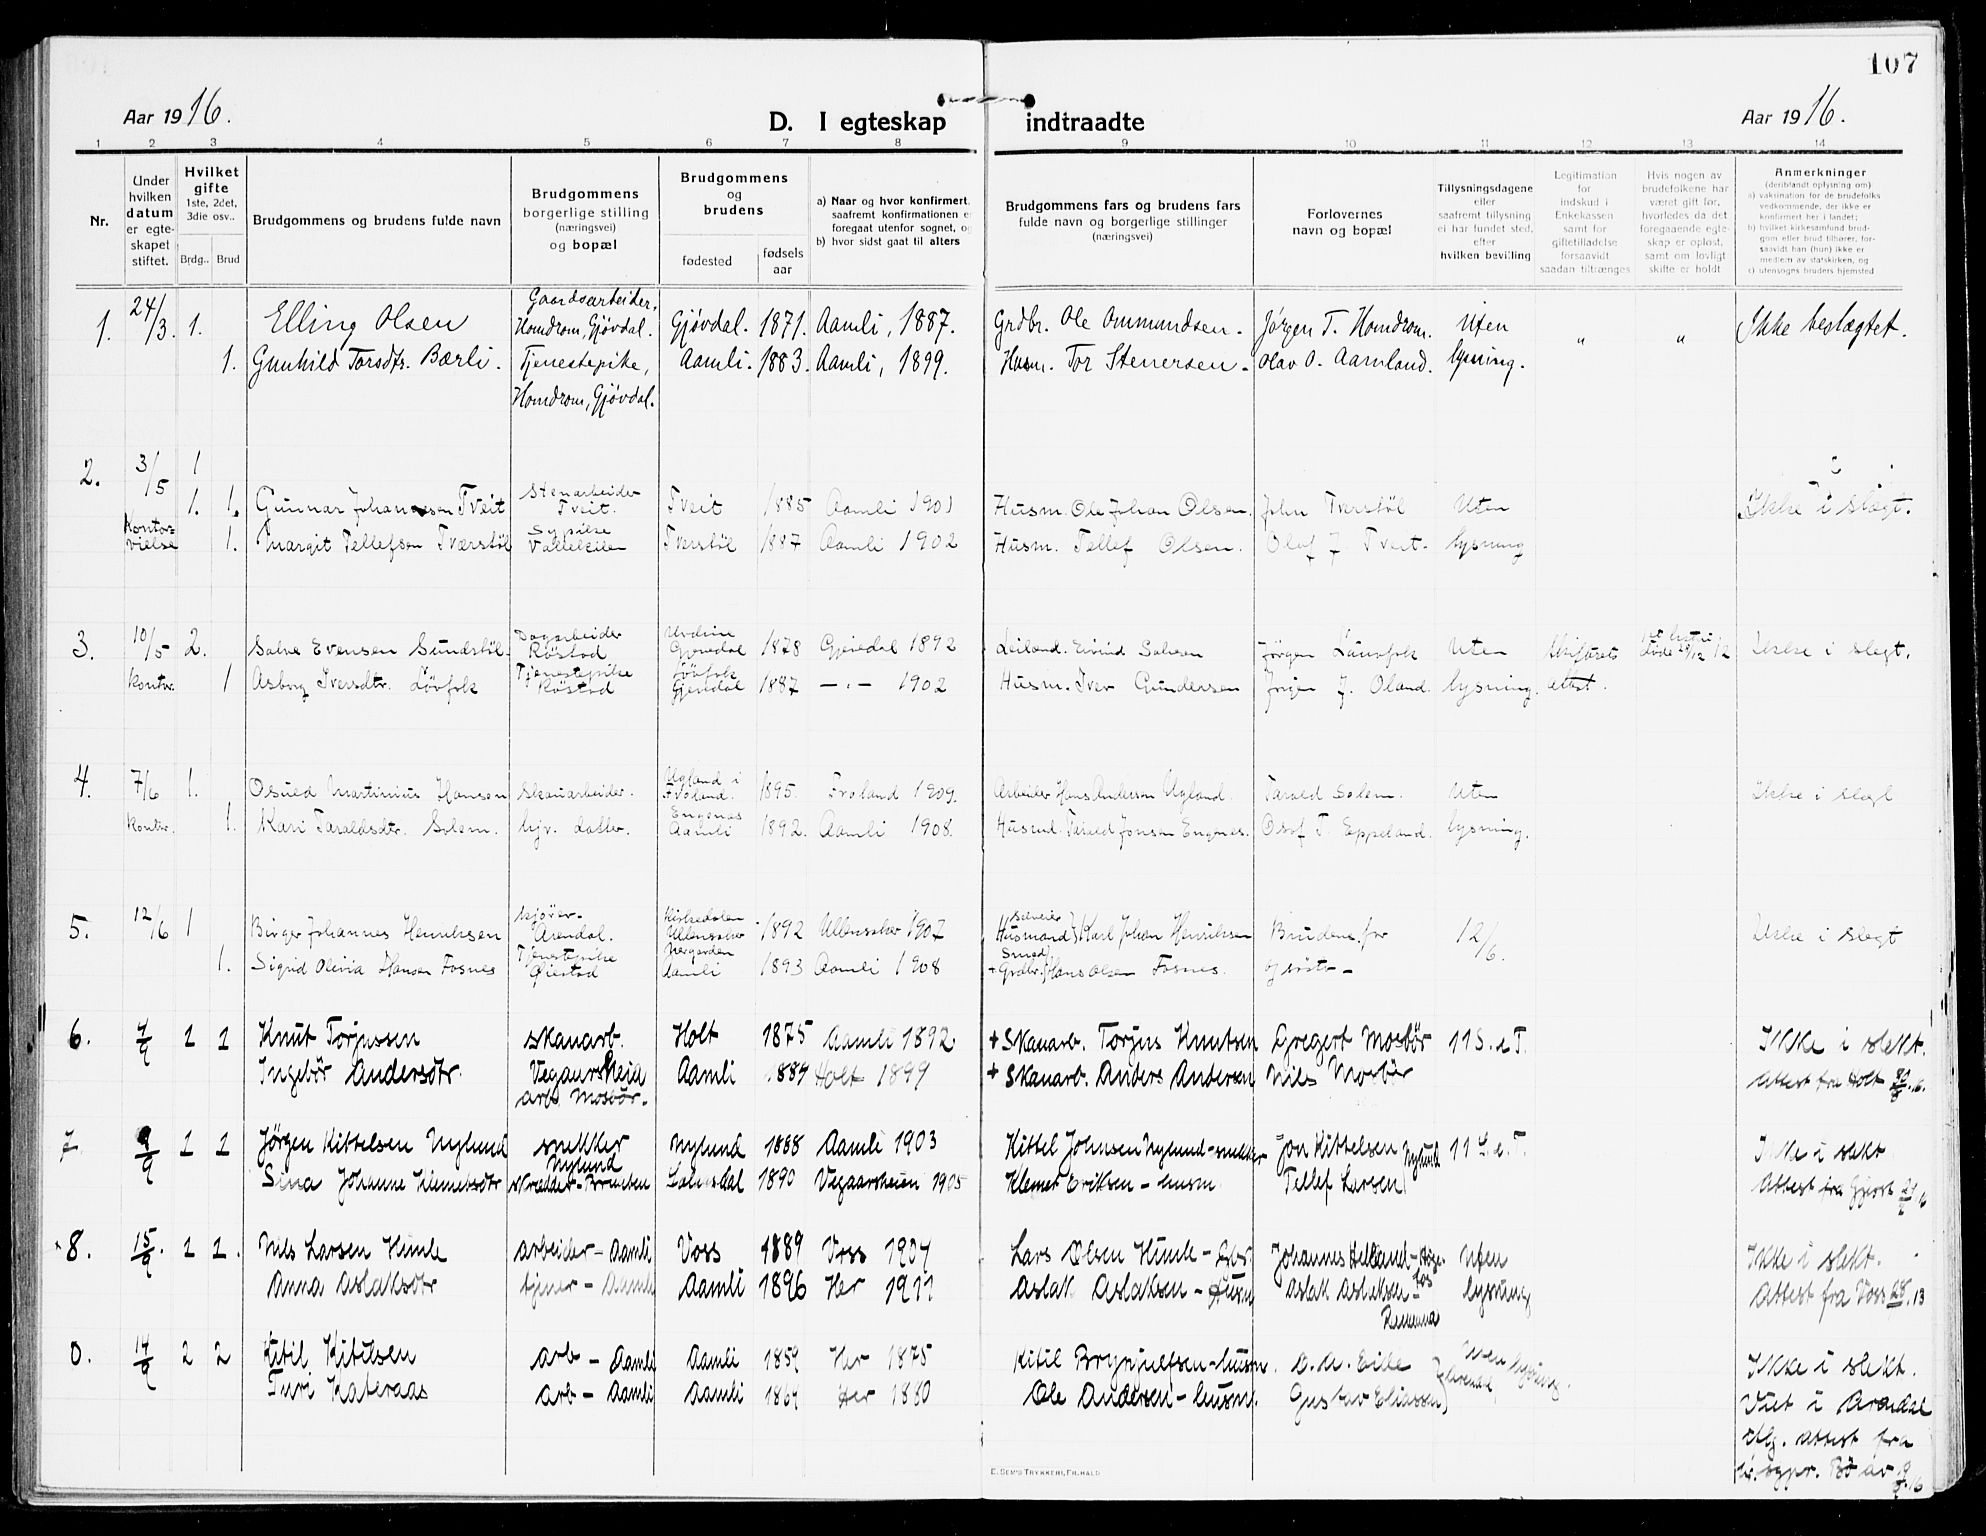 107
Aar 1916.
D. I egteskap indtraadte
Aar 1916.
1 2 3 4 5 6 7 8 9 10 11 12 13 14
Nr.
Under hvilken datum er egteskapet stiftet.
Hvilket gifte 1ste, 2det, 3die osv..
Brdg.. Brud
Brudgommens og brudens fulde navn
Brudgommens borgerlige stilling (næringsvei) og bopæl
Brudgommens og brudens
fødested
fødsels aar
a) Naar og hvor konfirmert,
saafremt konfirmationen er
foregaat utenfor sognet, og
b) hvor sidst gaat til alters
Brudgommens fars og brudens fars
fulde navn og borgerlige stillinger
(næringsvei)
Forlovernes
navn og bopæl
Tillysningsdagene
eller
saafremt tillysning
ei har fundet sted,
efter
hvilken bevilling
Legitimation
for
indskud i
Enkekassen
samt for
giftetilladelse
forsaavidt
saadan tiltrænges
Hvis nogen av
brudefolkene har
været gift før,
hvorledes da det
foregaaende egte-
skap er opløst,
samt om lovligt
skifte er holdt
Anmerkninger
(deriblandt oplysning om)
a) vaksination for de brudefolks
vedkommende, der ikke er
konfirmert her i landet;
b) hvilket kirkesamfund brud-
gom eller brud tilhører, for-
saavidt han (hun) ikke er
medlem av statskirken, og
c) utensogns bruders hjemsted
1. 24/3. 1. Elling Olsen Gaardsarbeider, Homdrom, Gjøvdal. Gjøvdal. 1871. Aamli, 1887. Grdbr. Ole Ommundsen. Jørgen T. Homdrom. Uten " " Ikke beslægtet.
1. Gunhild Torsdtr. Bærli. Tjenestepike, Homdrom, Gjøvdal. Aamli. 1883. Aamli, 1899. Husm. Tor Stenersen. Olav O. Aamland. lysning.
2. 3/5 1
1. 1. Gunnar Johannesen Tveit Stenarbeider Tveit. Tveit 1885 Aamli 1901 Husm. Ole Johan Olsen. John Tverstøl Uten Ikke i slægt.
Kontorvielse 1. Margit Tellefsen Tverstøl Sypike Tverstøl 1887 Aamli 1902 Husm. Tellef Olsen. Olaf J. Tveit. lysning
3. 10/5 2. Salve Evensen Sundstøl. Dagarbeider Røstad Gjøvdal 1878 Gjøvdal 1892 Eivind Salvesen Jørgen Løvfolk Uten Skifterets Ikke i slegt.
Kontor. 1 Asborg Iversdtr. Løvfolk Tjenestepike Røstad Løvfolk Gjøvdal 1887 — " — 1902 Husm. Iver Gundersen Jørgen J. Oland. lysning. attest.
4. 7/6 1. Martinius Hansen Skauarbeider. Ugland i Froland. 1895. Froland 1909. Arbeider Hans Andersen Ugland. Tarald Solem. Uten Ikke i slegt
Kontor. 1. Kari Taraldsdtr. Solem. hjv. datter. Engenes Aamli 1892. Aamli 1908. Husmd. Tarald Jonsen Engnes. Olof T. Eppeland. lysning.
5. 12/6 1 Birger Johannes Henriksen Arendal. Ullensaker 1892 Ullensaker 1907 Husmand Karl Johan Henriksen Brudens far 12/6. Ikke i slegt
1. Sigrid Olivia Hansen Fosnes Tjenestepike Øiestad Aamli 1893 Aamli 1908 Smed + Grdbr. Hans Olsen Fosnes.
6. 4/9 1 1 Knut Torjussen skauarb. Holt 1875 Aamli 1892 + Skauarb. Torjus Knutsen Gregert Mosbør 11 S. e T. Ikke i slekt.
Ingebør Andersdtr. Vegaarsheia arb Mosbør. Aamli 1884 Holt 1899 + Skauarb. Anders Andersen Nils Mosbør Attest fra Holt
7 9/9 1 1 Jørgen Kittelsen Nylund snekker Nylund Nylund 1888 Aamli 1903 Kittel Johnsen Nylund – snekker Jon Kittelsen Nylund 11 S. e. T. Ikke i slekt
Sina Johanne Klemetsdtr skredder – Brunten 1890 Vegaarsheien 1905 Klemet Eriksen – husm. Tellef Larsen Attest fra Gjerst.
8. 15/9. 1 1. Nils Larsen Himle arbeider – Aamli Voss 1889 Voss 1904 Lars Olsen Himle – Gbr. Uten Ikke i slekt.
Anna Aslaksdtr tjener – Aamli Aamli 1896 Her 1911 Aslak Aslaksen – Husm Aslak Aslaksen lysning Attest fra Voss
0. 14/9 2 2 Kitil Kitilsen arb – Aamli Aamli 1859 Her 1875 Kitil Brynjulfsen – husm. O. A. Eide Uten lysning. Ikke i slekt.
Turi Kateraas arb – Aamli Aamli 1864 Her 1880 Ole Andersen – husm. Gustav Eliassen Arendal Viet i Arendal
Attest fra
sogpr.
E. Sem's Trykkeri, Fr.hald